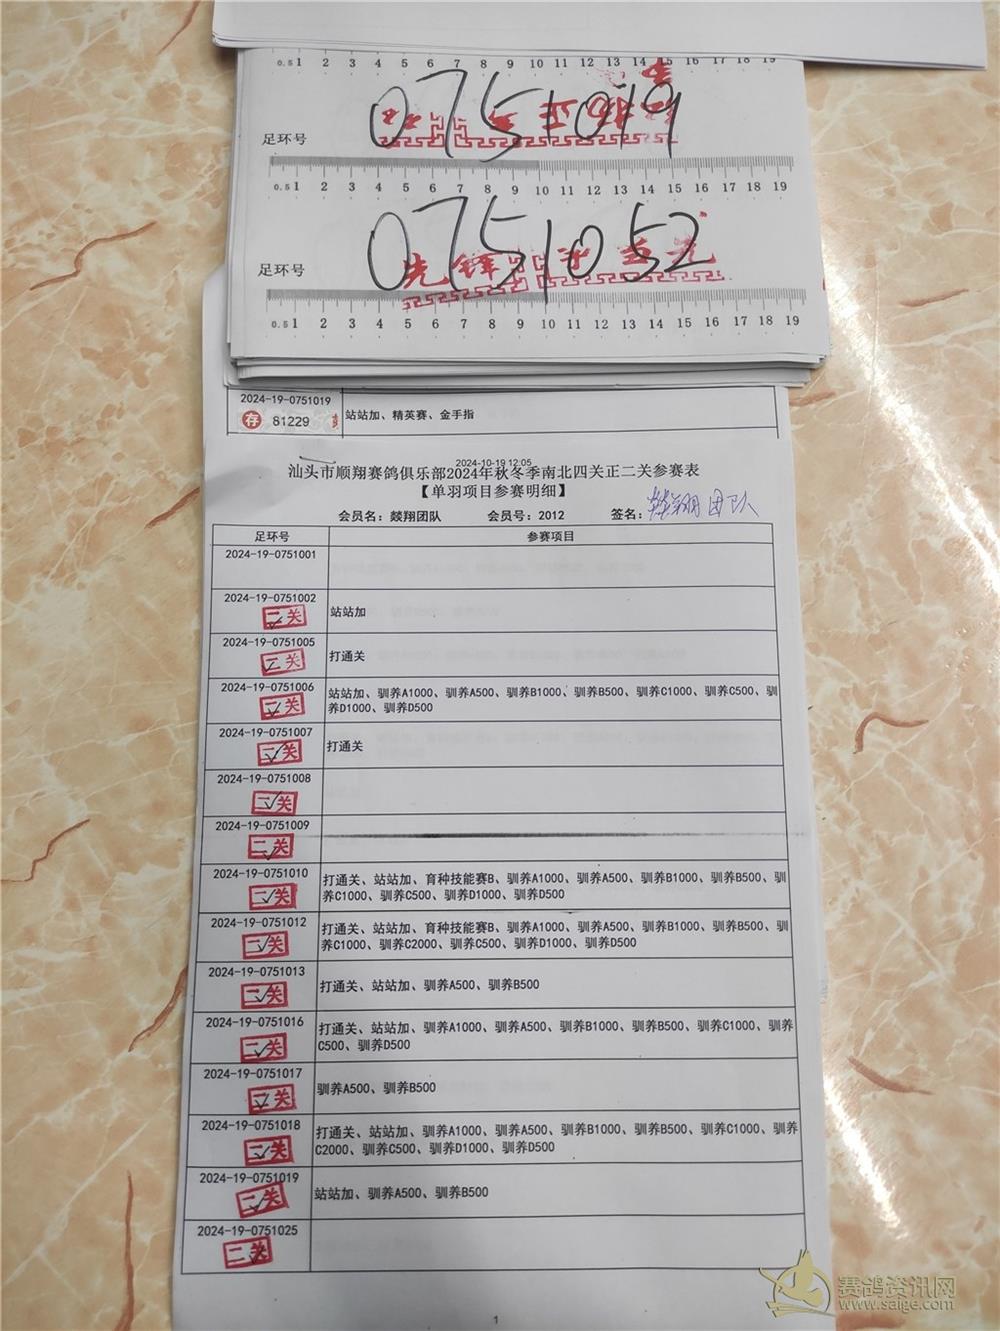 0.5 1 2 3 4 5 6 7 8 9 10 11 12 13 14 15 16 17 18 19
足环号 0751019
0.5 1 2 3 4 5 6 7 8 9 10 11 12 13 14 15 16 17 18 19
足环号 0751052
0.5 1 2 3 4 5 6 7 8 9 10 11 12 13 14 15 16 17 18 19
2024-19-0751019
存 81229 站站加、精英赛、金手指
2024-10-19 12:05
汕头市顺翔赛鸽俱乐部2024年秋冬季南北四关正二关参赛表
【单羽项目参赛明细】
会员名：燚翔团队 会员号：2012 签名：燚翔团队
足环号 参赛项目
2024-19-0751001
2024-19-0751002
二关 站站加
2024-19-0751005
二关 打通关
2024-19-0751006
二关 站站加、驯养A1000、驯养A500、驯养B1000、驯养B500、驯养C1000、驯养C500、驯
养D1000、驯养D500
2024-19-0751007
二关 打通关
2024-19-0751008
二关
2024-19-0751009
二关
2024-19-0751010
二关 打通关、站站加、育种技能赛B、驯养A1000、驯养A500、驯养B1000、驯养B500、驯
养C1000、驯养C500、驯养D1000、驯养D500
2024-19-0751012
二关 打通关、站站加、育种技能赛B、驯养A1000、驯养A500、驯养B1000、驯养B500、驯
养C1000、驯养C2000、驯养C500、驯养D1000、驯养D500
2024-19-0751013
二关 打通关、站站加、驯养A500、驯养B500
2024-19-0751016
二关 打通关、站站加、驯养A1000、驯养A500、驯养B1000、驯养B500、驯养C1000、驯养
C500、驯养D500
2024-19-0751017
二关 驯养A500、驯养B500
2024-19-0751018
二关 打通关、站站加、驯养A1000、驯养A500、驯养B1000、驯养B500、驯养C1000、驯养
C2000、驯养C500、驯养D1000、驯养D500
2024-19-0751019
二关 站站加、驯养A500、驯养B500
2024-19-0751025
二关
1
赛鸽资讯网
www.saige.com